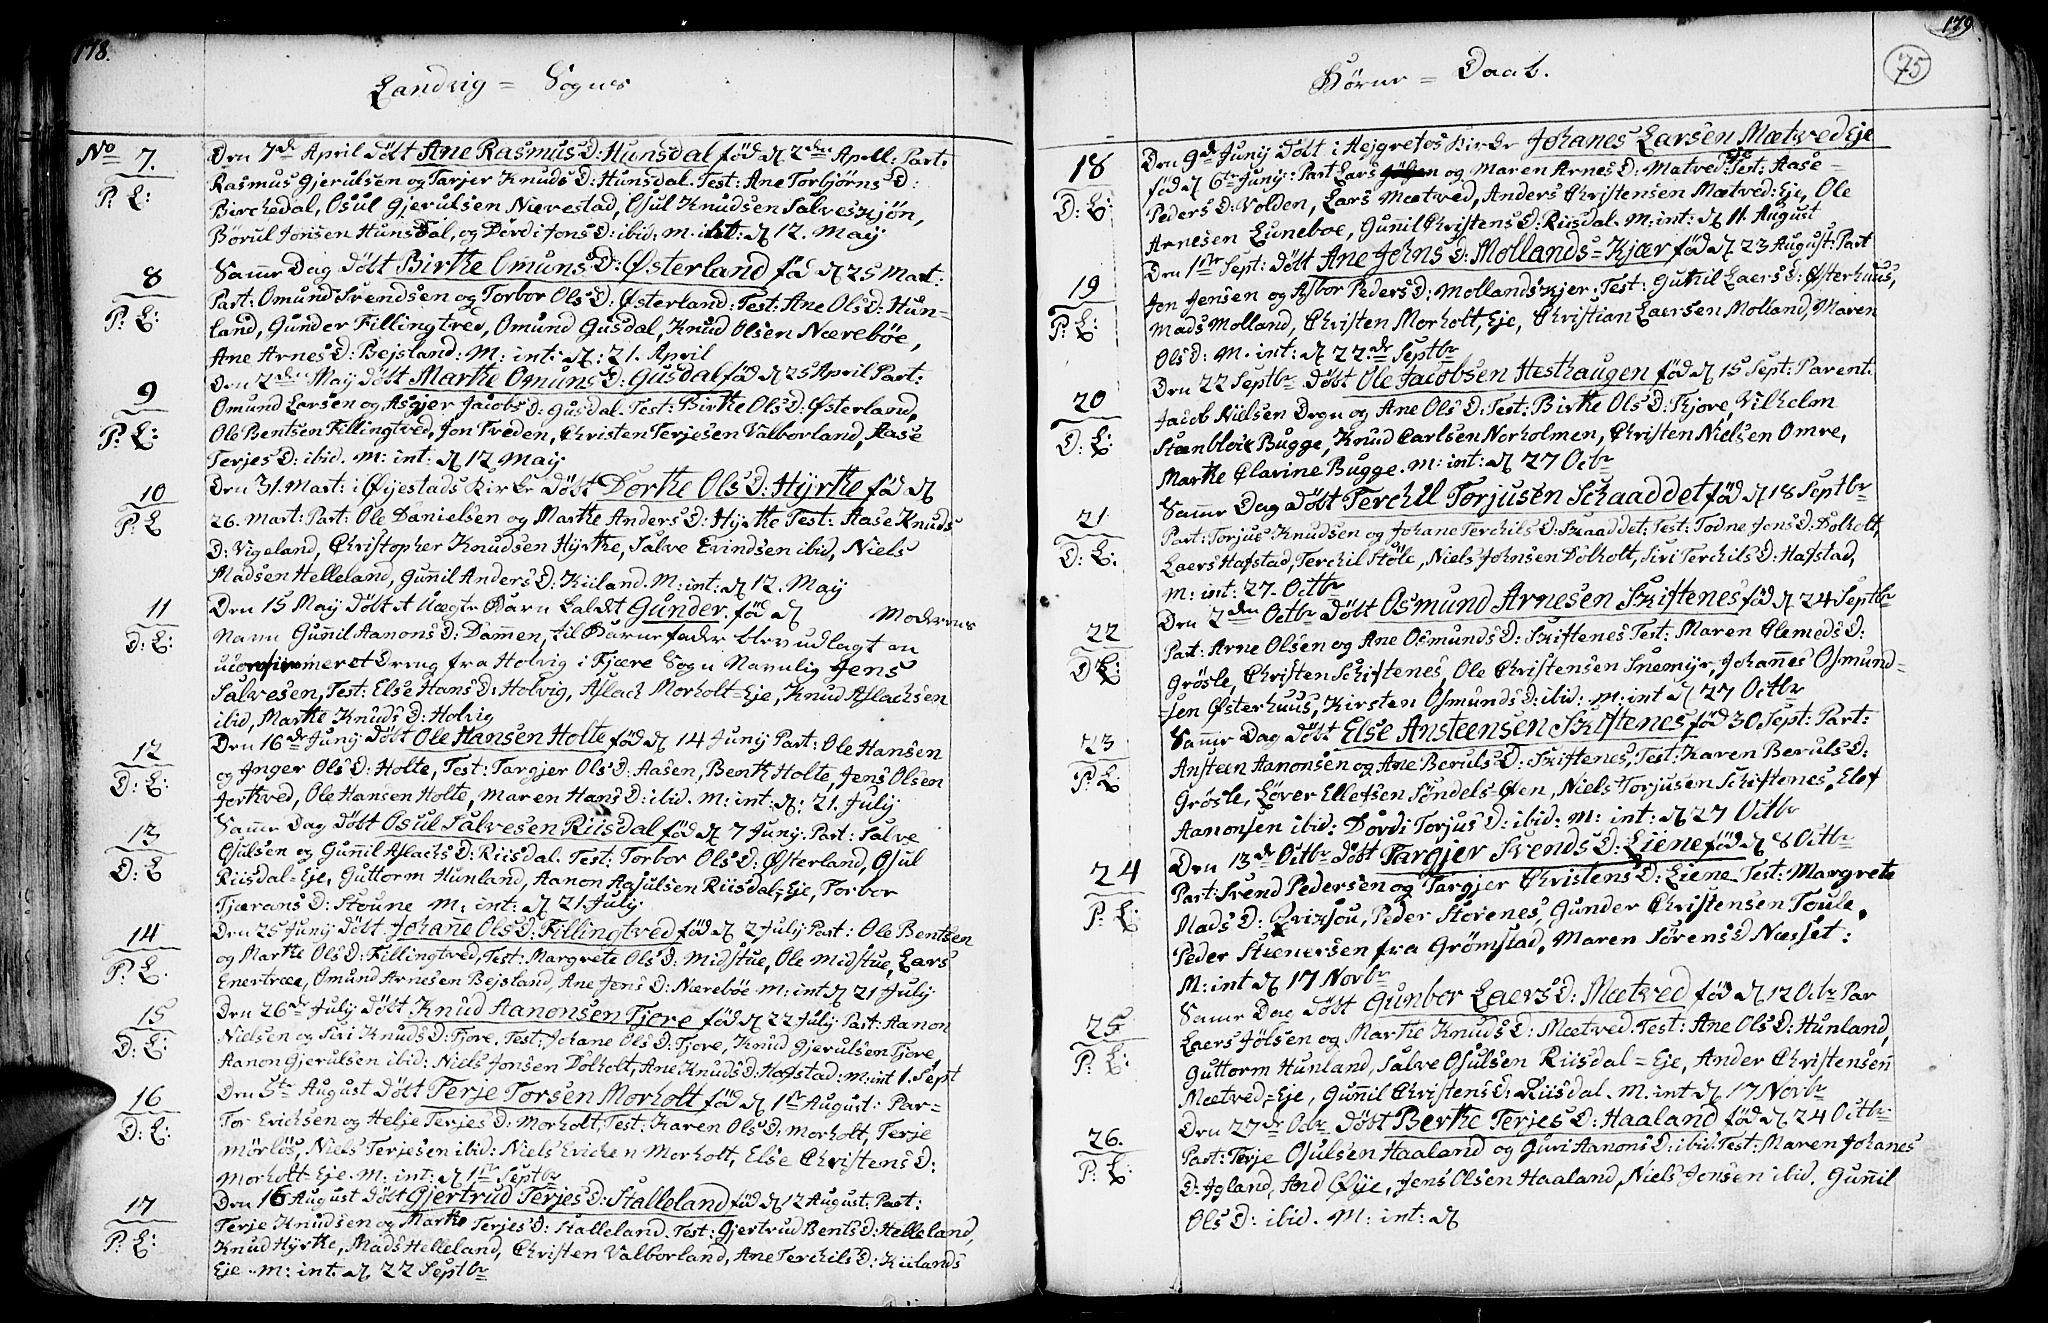 178.
Landvig = Sogns
No 7.
P: L:
Den 7de April døbt Ane Rasmus D: Hunsdal fød d 2den Apell: Part:
Rasmus Gjerulsen og Tarjer Knuds D: Hunsdal. Test: Ane Torbjørns D:
Birchedal, Osul Gjerulsen Nævestad, Osul Knudsen Salveskjøn,
Børul Jonsen Hunsdal, og Dordi Jons D: ibid: m. int: d 12. May
8
P: L:
Samme Dag døbt Birthe Omuns D: Østerland fød d 25 Mart:
Part: Omund Svendsen og Torbor Ols D: Østerland: Test: Ane Ols D: Hun-
land, Gunder Fillingtved, Omund Gusdal, Knud Olsen Nærebøe,
Ane Arnes D: Bejsland: M: int: d: 21. April
9
P: L:
Den 2den May døbt Marthe Omuns D: Gusdal fød d 25 April Part:
Omund Larsen og Asgjer Jacobs D: Gusdal. Test: Birthe Ols D: Østerland,
Ole Bentsen Fillingtved, Jon Tveden, Christen Terjesen Valborland, Aase
Terjes D: ibid. m: int: d 12 May
10
P: L
Den 31. Mart: i Øijestads Kirke døbt Dorthe Ols D: Hyrthe fød d
26. Mart: Part: Ole Danielsen og Marthe Anders D: Hyrthe Test: Aase Knuds
D: Vigeland, Christopher Knudsen Hyrthe, Salve Evindsen ibid, Niels
Madsen Helleland, Gunnil Anders D: Kiiland. M: int: d 12. May
11
D: L:
Den 15 May døbt et Uægte Barn kaldt Gunder. fød d Moderens
Navn Gunnil Aanons D: Dømmen, til Barnefader blev udlagt en
uconfirmeret Dreng fra Holvig i Fjære Sogn Navnlig Jens
Salvesen, Test: Else Hans D: Holvig, Aslach Morholt=Eje, Knud Aslachsen
ibid, Marthe Knuds D: Holvig
12
D: L:
Den 16de Junij døbt Ole Hansen Holte fød d 14 Junij Part: Ole Hansen
og Inger Ols D: Holte, Test: Targjer Ols D: Aasen, Benth Holte, Jens Olsen
Jorthved, Ole Hansen Holte, Maren Hans D: ibid. m: int: d: 21. July
13
D: L
Samme Dag døbt Osul Salvesen Riisdal fød d 7 Junij. Part: Salve
Osulsen og Gunnil Aslachs D: Riisdal. Test: Torbor Ols D: Østerland, Osul
Riisdal=Eje, Guttorm Hunland, Aanon Aasulsen Riisdal=Eje, Torbor
Tjærans D: Stoune m: int: d 21 July
14
P: L.
Den 25 Junij døbt Johanne Ols D: Fillingtved fød d 2 Julij Part: Ole Bentsen
og Marthe Ols D: Fillingtved, Test: Margrete Ols D: Midstue, Ole Midstue, Lars
Enertræe, Omund Arnesen Bejsland, Ane Jens D: Nærebøe m: int d 21 July
15
D: L:
Den 26de July døbt Knud Aanonsen Fjere fød d 22 July Part: Aanon
Nielsen og Siri Knuds D: Fjore. Test: Johane Ols D: Fjore, Knud Gjerulsen Fjore,
Aanon Gjerulsen ibid: Niels Jonsen Dolholt, Ane Knuds D: Hofstad: m: int 1. Sept
16
D: L:
Den 5te August døbt Terje Torsen Morholt fød d 1ste August: Par=
Tor Erichsen og Helje Terjes D: Morholt, Test: Karen Ols D: Morholt, Terje
Mørløs, Niels Terjesen ibid: Niels Erichen Morholt, Else Christens D:
Morholt-Eje. m: int: d 1ste Septbr
17
P: L:
Den 16 August døbt Gjertrud Terjes D: Stalleland fød d 12 August: Part:
Terje Knudsen og Marthe Terjes D: Stalleland. Test: Gjertrud Bents D: Helleland,
Knud Hyrthe, Mads Helleland, Christen Valborland, Ane Terchils D: Kiilands
Eje. m: int: d, 22 Septbr
179
75
Børne = Daab.
18
D: L:
Den 9de Junij døbt i Hejgretøs Kirke Johanes Larsen Mætved Eje
fød d 6te Junij: Part Lars og Maren Arnes D: Matved Eje Test: Aase
Peders D: Volden, Lars Mætved, Anders Christensen Mætved: Eje, Ole
Arnesen Luneboe, Gunil Christens D: Riisdal. m: int: d 11. August
19
P: L:
Den 1ste Sept: døbt Ane Johns D: Mollands=Kjær fød d 23 August: Part
Jon Jensen og Asbor Peders D: Mollandskjer. Test: Gunil Laers D: Østerhuus,
Mads Molland, Christen Morholt, Eje, Christian Laersen Molland, Maren
Ols D: m. int: d 22de Septbr
20
D: L:
Den 22 Septbr døbt Ole Jacobsen Hesthaugen fød d 15 Sept: Parent:
Jacob Nielsen Degn og Ane Ols D: Test: Birthe Ols D: Fjore, Vilhelm
Steenbloc Bugge, Knud Carlsen Norholmen, Christen Nielsen Omre,
Marthe Clarine Bugge. m: int: d 27 Octbr
21
D: L:
Samme Dag døbt Terchil Torjusen Schaaddet fød d 18 Septbr
Part: Torjus Knudsen og Johane Terchils D: Skaaddet: Test: Todne Jons D: Dolholt,
Laers Hafstad, Terchil Støle, Niels Johnsen Dolholt, Siri Terchils D: Hafstad,
m: int: 27. Octbr
22
D: L:
Den 2den Octbr døbt Osmund Arnesen Skiftenes fød d 24 Septbr
Part: Arne Olsen og Ane Osmunds D: Skiftenes Test: Maren Clemeds D:
Grøsle, Christen Schiftenes, Ole Christensen Snemyr, Johannes Osmund=
=sen Østerhuus, Kirsten Osmunds D: ibid: m: int d 27 Octbr
23
P: L:
Samme Dag døbt Else Ansteensen Skiftenes fød 30 Sept: Part:
Ansteen Aanonsen og Ane Beruls D: Skiftenes, Test: Karen Beruls D:
Grøsle, Løver Ellefsen Søndels-Øen, Niels Torjusen Schiftenes, Elef
Aanonsen ibid: Dordi Torjus D: ibid: m: int: d 27 Octbr
24
P: L:
Den 13de Octbr døbt Targjer Svends D: Liene fød d 8 Octbr
Part: Svend Pedersen og Targjer Christens D: Liene Test: Margrete
Mads D: Qvixsou, Peder Storenes, Gunder Christensen Toule,
Peder Steenersen fra Grømstad, Maren Sørens D Næsset:
M: int d 17 Novbr
25
P: L:
Samme Dag døbt Gunbor Laers D: Mætved fød d 12 Octbr Par
Laers Jølsen og Marthe Knuds D: Mætved. Test: Ane Ols D: Hunland,
Guttorm Hunland, Salve Osulsen Riisdal=Eje, Ander Christensen
Mætved=Eje, Gunnil Christens D: Riisdal. m. int d 17 Novbr
26.
P: L:
Den 27de Octbr døbt Berthe Terjes D: Haaland fød d 24 Octbr
Part: Terje Osulsen Haaland og Guri Aanons D: ibid: Test: Maren Johanes
D: Igland, And Øije, Jens Olsen Haaland, Niels Jensen ibid. Gunnil
Ols D: ibid. M: int: d